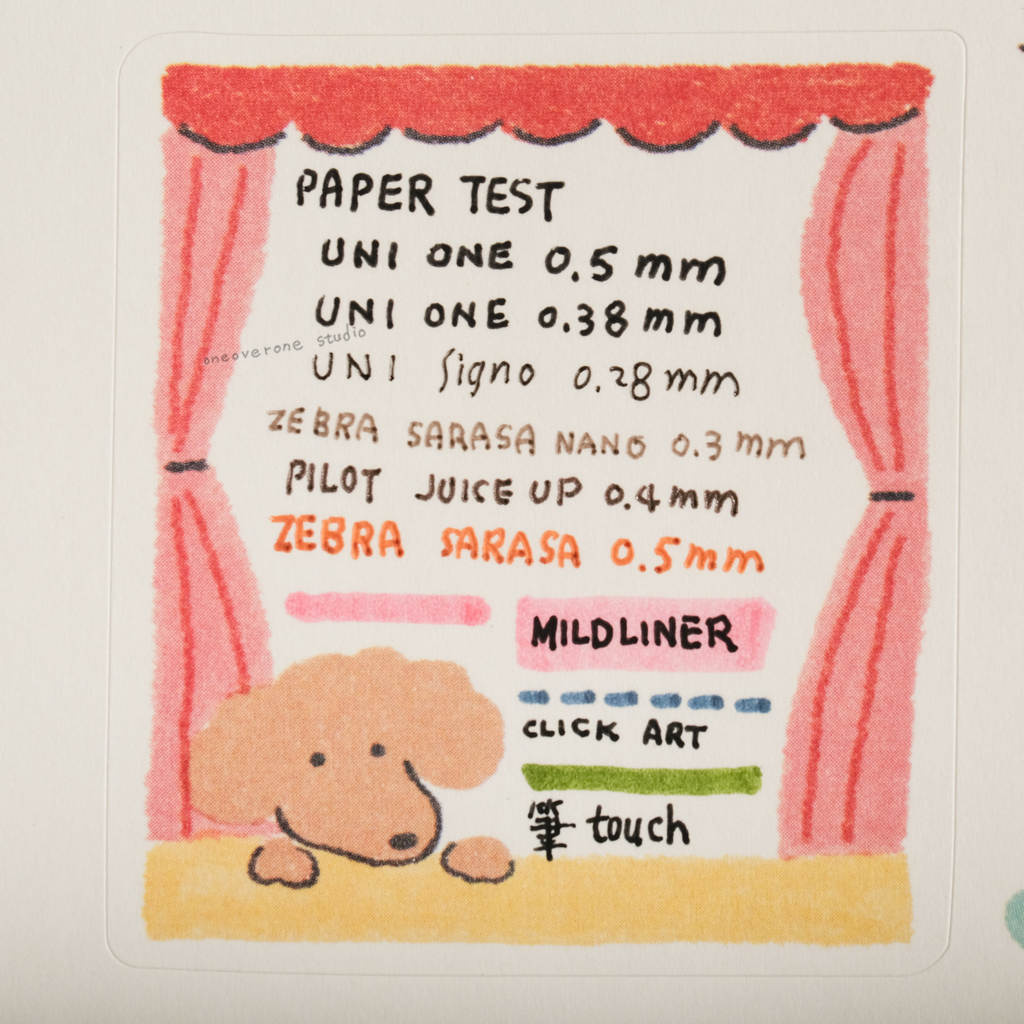 PAPER TEST
UNI ONE 0.5 mm
UNI ONE 0.38 mm
oneoverone studio
UNI Signo 0.28 mm
ZEBRA SARASA NANO 0.3 mm
PILOT JUICE UP 0.4 mm
ZEBRA SARASA 0.5 mm
MILDLINER
CLICK ART
筆 touch